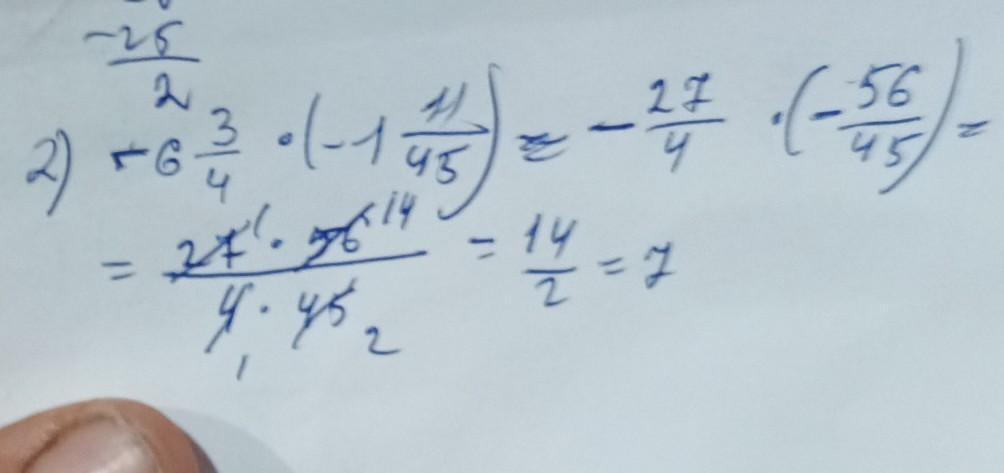 -25
2
2) -6 3/4 · (-1 11/45) = - 27/4 · (- 56/45) =
= 27 1 · 56 14 / 4 1 · 45 2 = 14/2 = 7